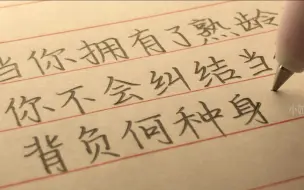 当你拥有了熟龄
你不会纠结当
背负何种身